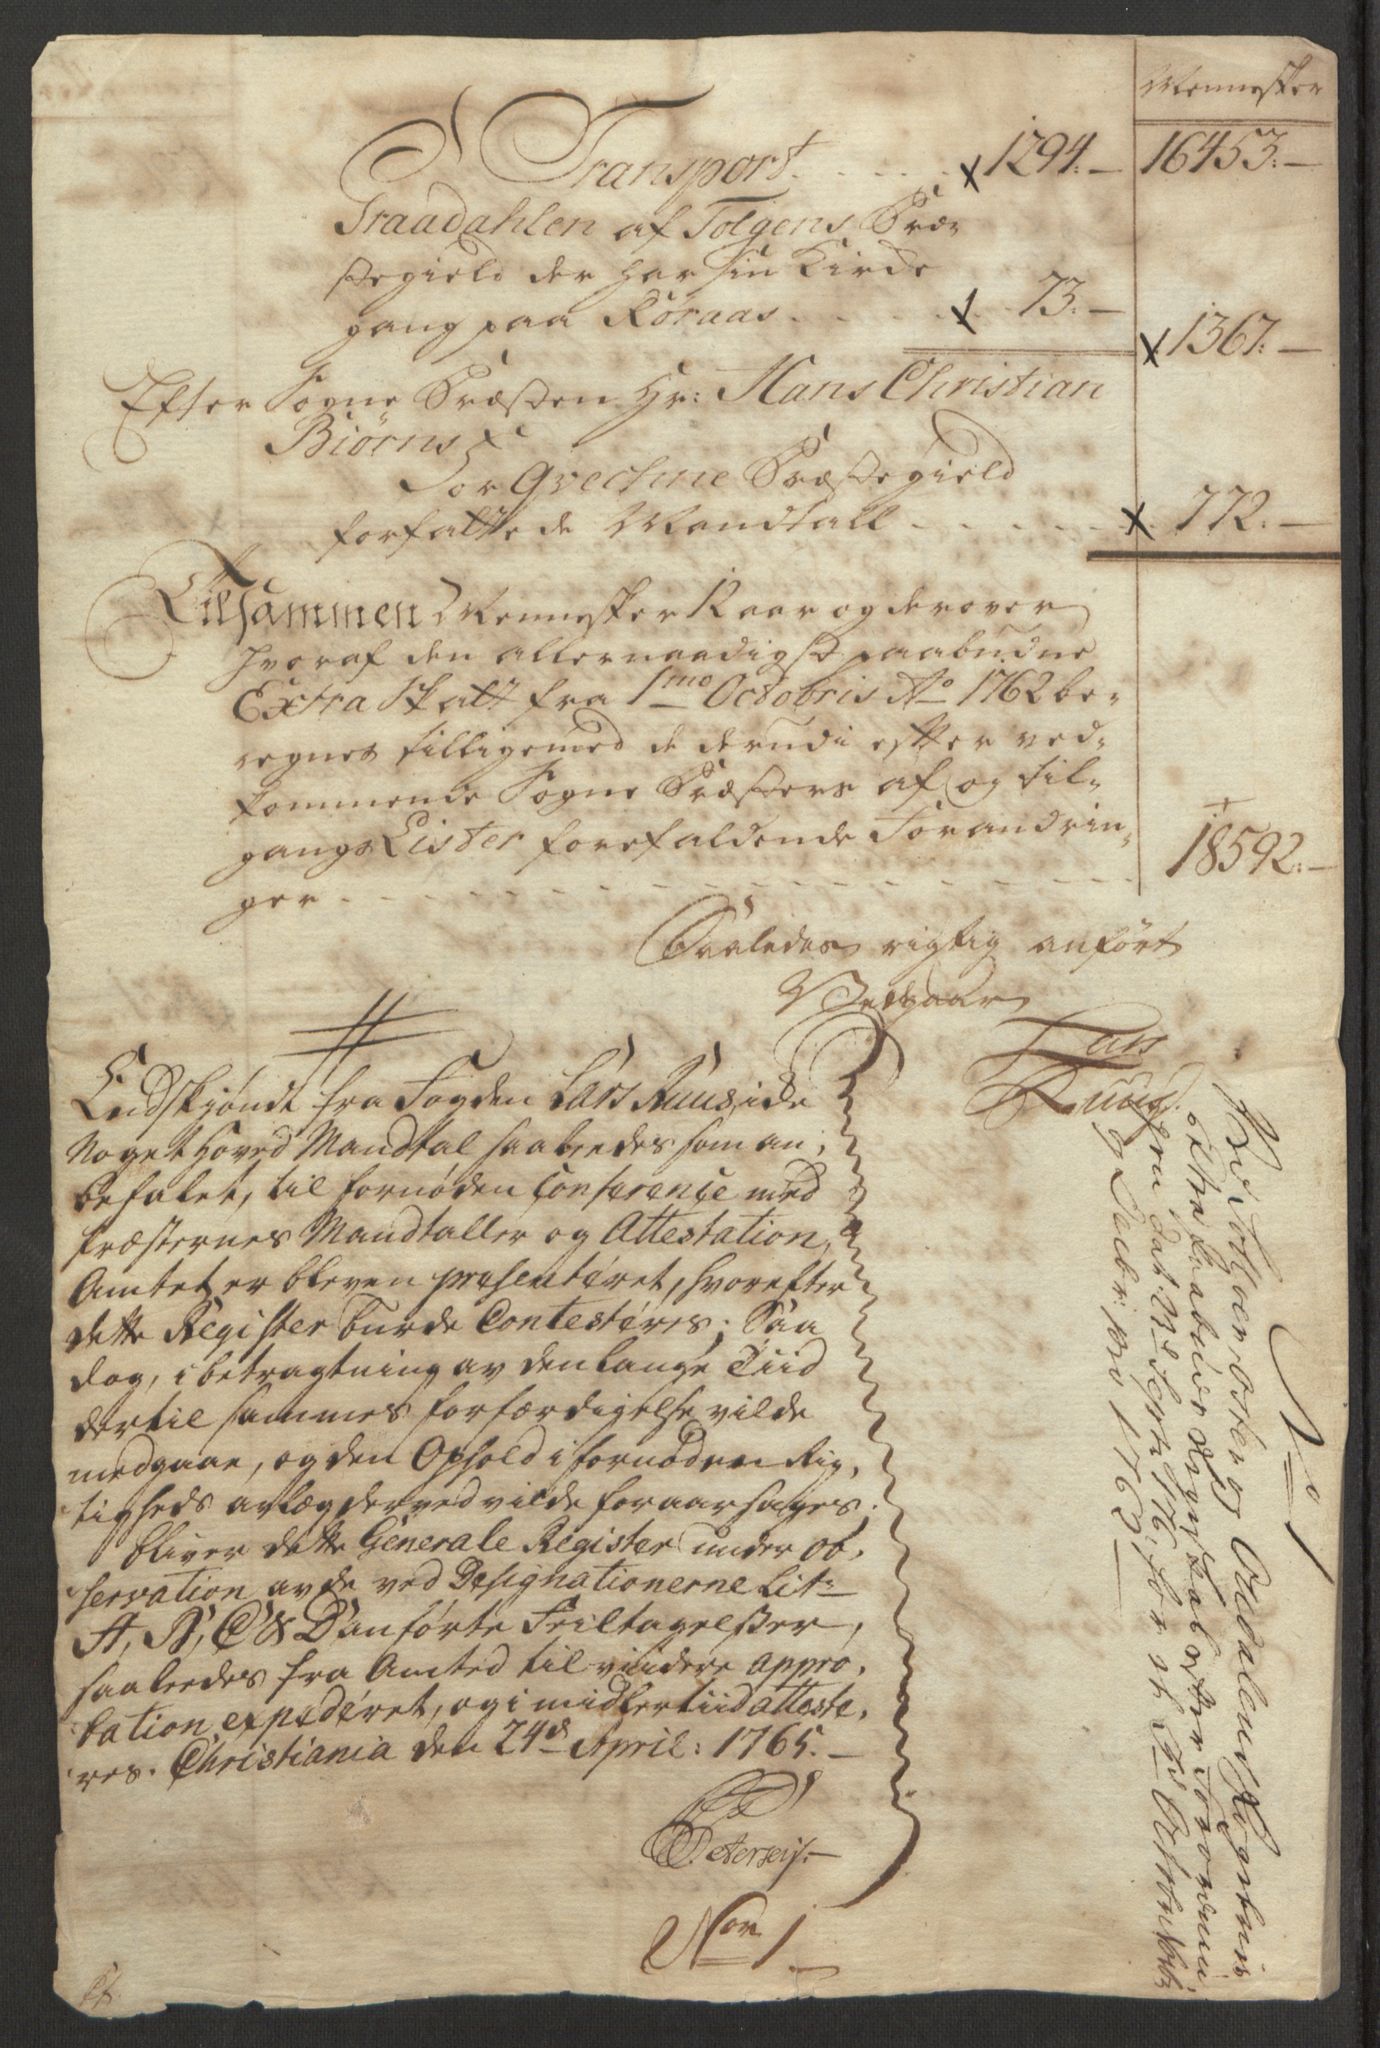 Mennesker
Transport . . . . . 1294. — 16453. —
Praadahlen af Tolgens Præ-
stegield der har sin Kirke
gang paa Röraas . . . . . 73. —
1367. —
Efter Sogne Præsten Hr: Hans Christian
Biörns
for Qvechne Præstegield
forfattede Mandtall . . . . . 772. —
Tilsammen Mennesker 12 aar og derover
hvoraf den allernaadigst paabudne
Extra Skatt fra 1mo Octobris Ao 1762 be-
regnes tilligemed de derudi efter ved-
kommende Sogne Præsters af og til-
gangs Lister forefaldende Forandrin-
ger . . . . . 18592. —
Saaledes rigtig anfört
Vedgaar
Lars
Ruus.
Endskjöndt fra Fogden Lars Ruus, icke
Noget Hoved Mandtal saaleedes som an,
befalet, til fornöden Conference med
Præsternes Mandtaller og Attestation,
Amtet er bleven præsenteret, hvorefter
dette Register burde Contesteres; Saa
dog, i betragtning av den lange Tiid
dertil sammes forfærdigelse vilde
medgaae, og den Ophold i fornöden Rig,
tigheds avlæg derved vilde foraarsages;
bliver dette Generale Register under ob,
servation av de ved Designationerne Lit:
A, B, C & D anförte Feiltagelsser,
saaleedes fra Amted til viidere appro,
bation expederet, og imidlertiid atteste,
res. Christiania den 24d April: 1765. —
Petersen. —
Nor 1
No 1